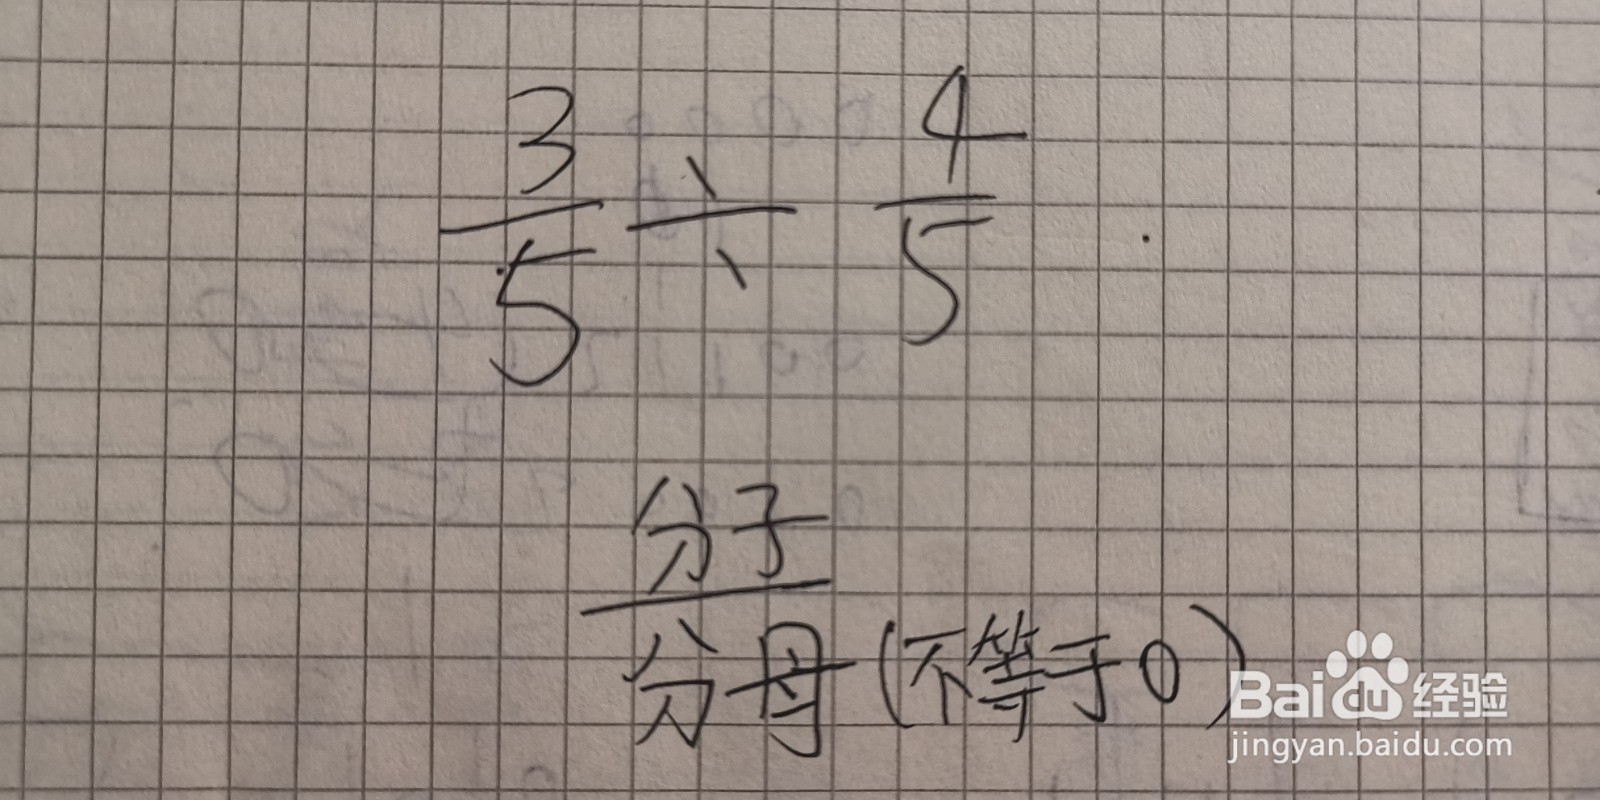 3/5 ÷ 4/5
分子
分母(不等于0)
Baidu经验
jingyan.baidu.com